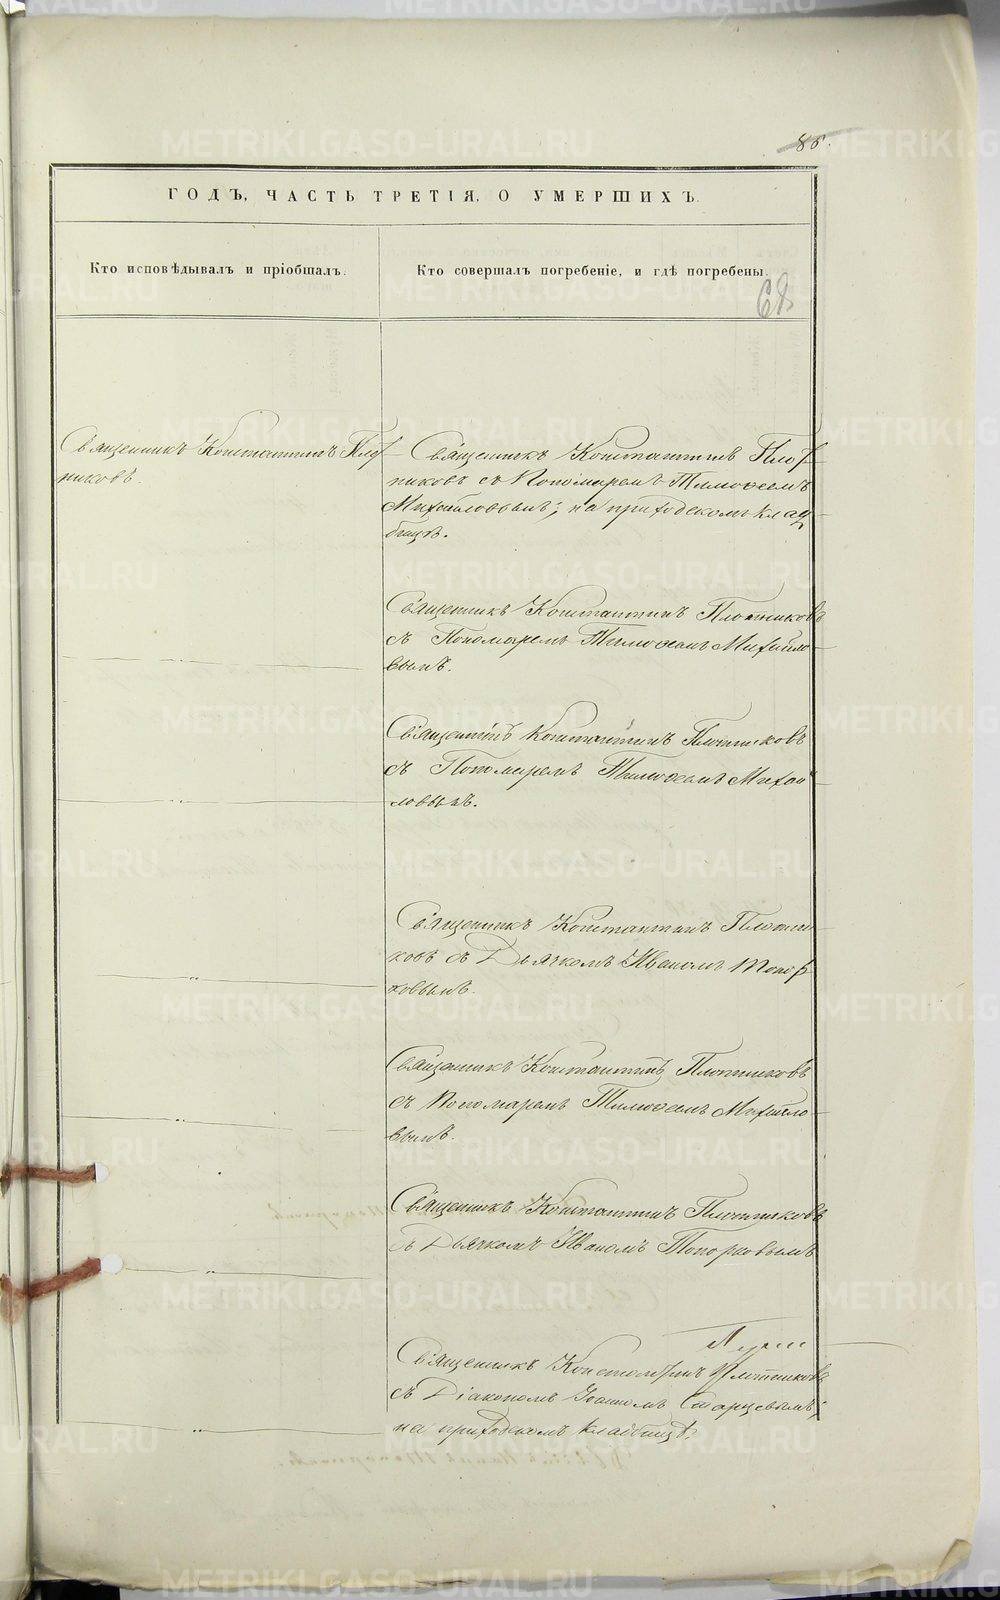 86.
ГОДЪ, ЧАСТЬ ТРЕТІЯ, О УМЕРШИХЪ.
Кто исповѣдывалъ и пріобщалъ.
Кто совершалъ погребеніе, и гдѣ погребены.
68
Священникъ Константинъ Плот-
никовъ.
Священникъ Константинъ Плот-
никовъ съ Пономаремъ Тимоѳеемъ
Михайловымъ; на приходскомъ клад-
бищѣ.
Священникъ Константинъ Плотниковъ
съ Пономаремъ Тимоѳеемъ Михайло-
вымъ.
— „ —
Священникъ Константинъ Плотниковъ
съ Пономаремъ Тимоѳеемъ Михай-
ловымъ.
— „ —
Священникъ Константинъ Плотни-
ковъ съ Дьячкомъ Иваномъ Топор-
ковымъ.
— „ —
Священникъ Константинъ Плотниковъ
съ Пономаремъ Тимоѳеемъ Михайло-
вымъ.
— „ —
Священникъ Константинъ Плотниковъ
съ Дьячкомъ Иваномъ Топорковымъ
— „ —
Священникъ Константинъ Плотниковъ
съ Діакономъ Іоанномъ Старцевымъ;
на приходскомъ кладбищѣ.
— „ —
METRIKI.GASO-URAL.RU